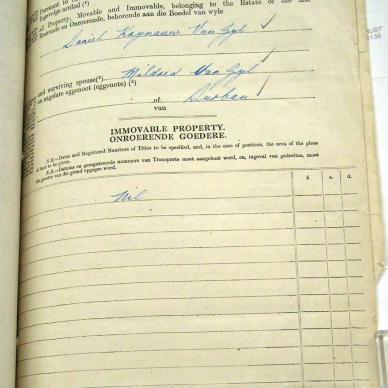 Pursuant to
Ingevolge artikel (¹)
of Property, Movable and Immovable, belonging to the Estate of the late
Roerende en Onroerende, behorende aan die Boedel van wyle
Daniel Zaynauw Van Zyl
and surviving spouse(²) Mildard Van Zyl
en nagelate eggenoot (eggenote) (²)
of Durban
van
IMMOVABLE PROPERTY.
ONROERENDE GOEDERE.
N.B.—Dates and Registered Numbers of Titles to be specified, and, in the case of portions, the area of the piece
of land to be given.
N.B.—Datums en geregistreerde nommers van Transporte moet aangehaal word, en, ingeval van gedeeltes, moet
die grootte van die grond opgegee word.
£ s. d.
Nil